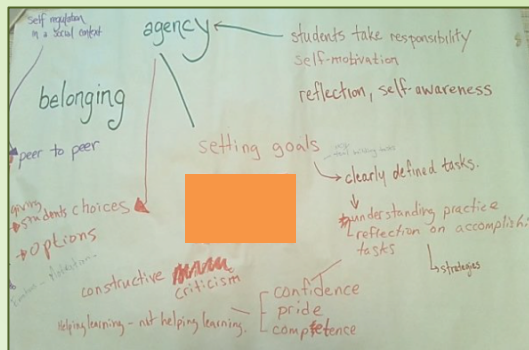 self regulation
in a social context
agency
students take responsibility
self-motivation
reflection, self-awareness
belonging
peer to peer
setting goals
clearly defined tasks.
giving
students choices
options
understanding practice
reflection on accomplish
tasks
strategies
constructive
criticism
confidence
pride
competence
Helping learning - not helping learning.